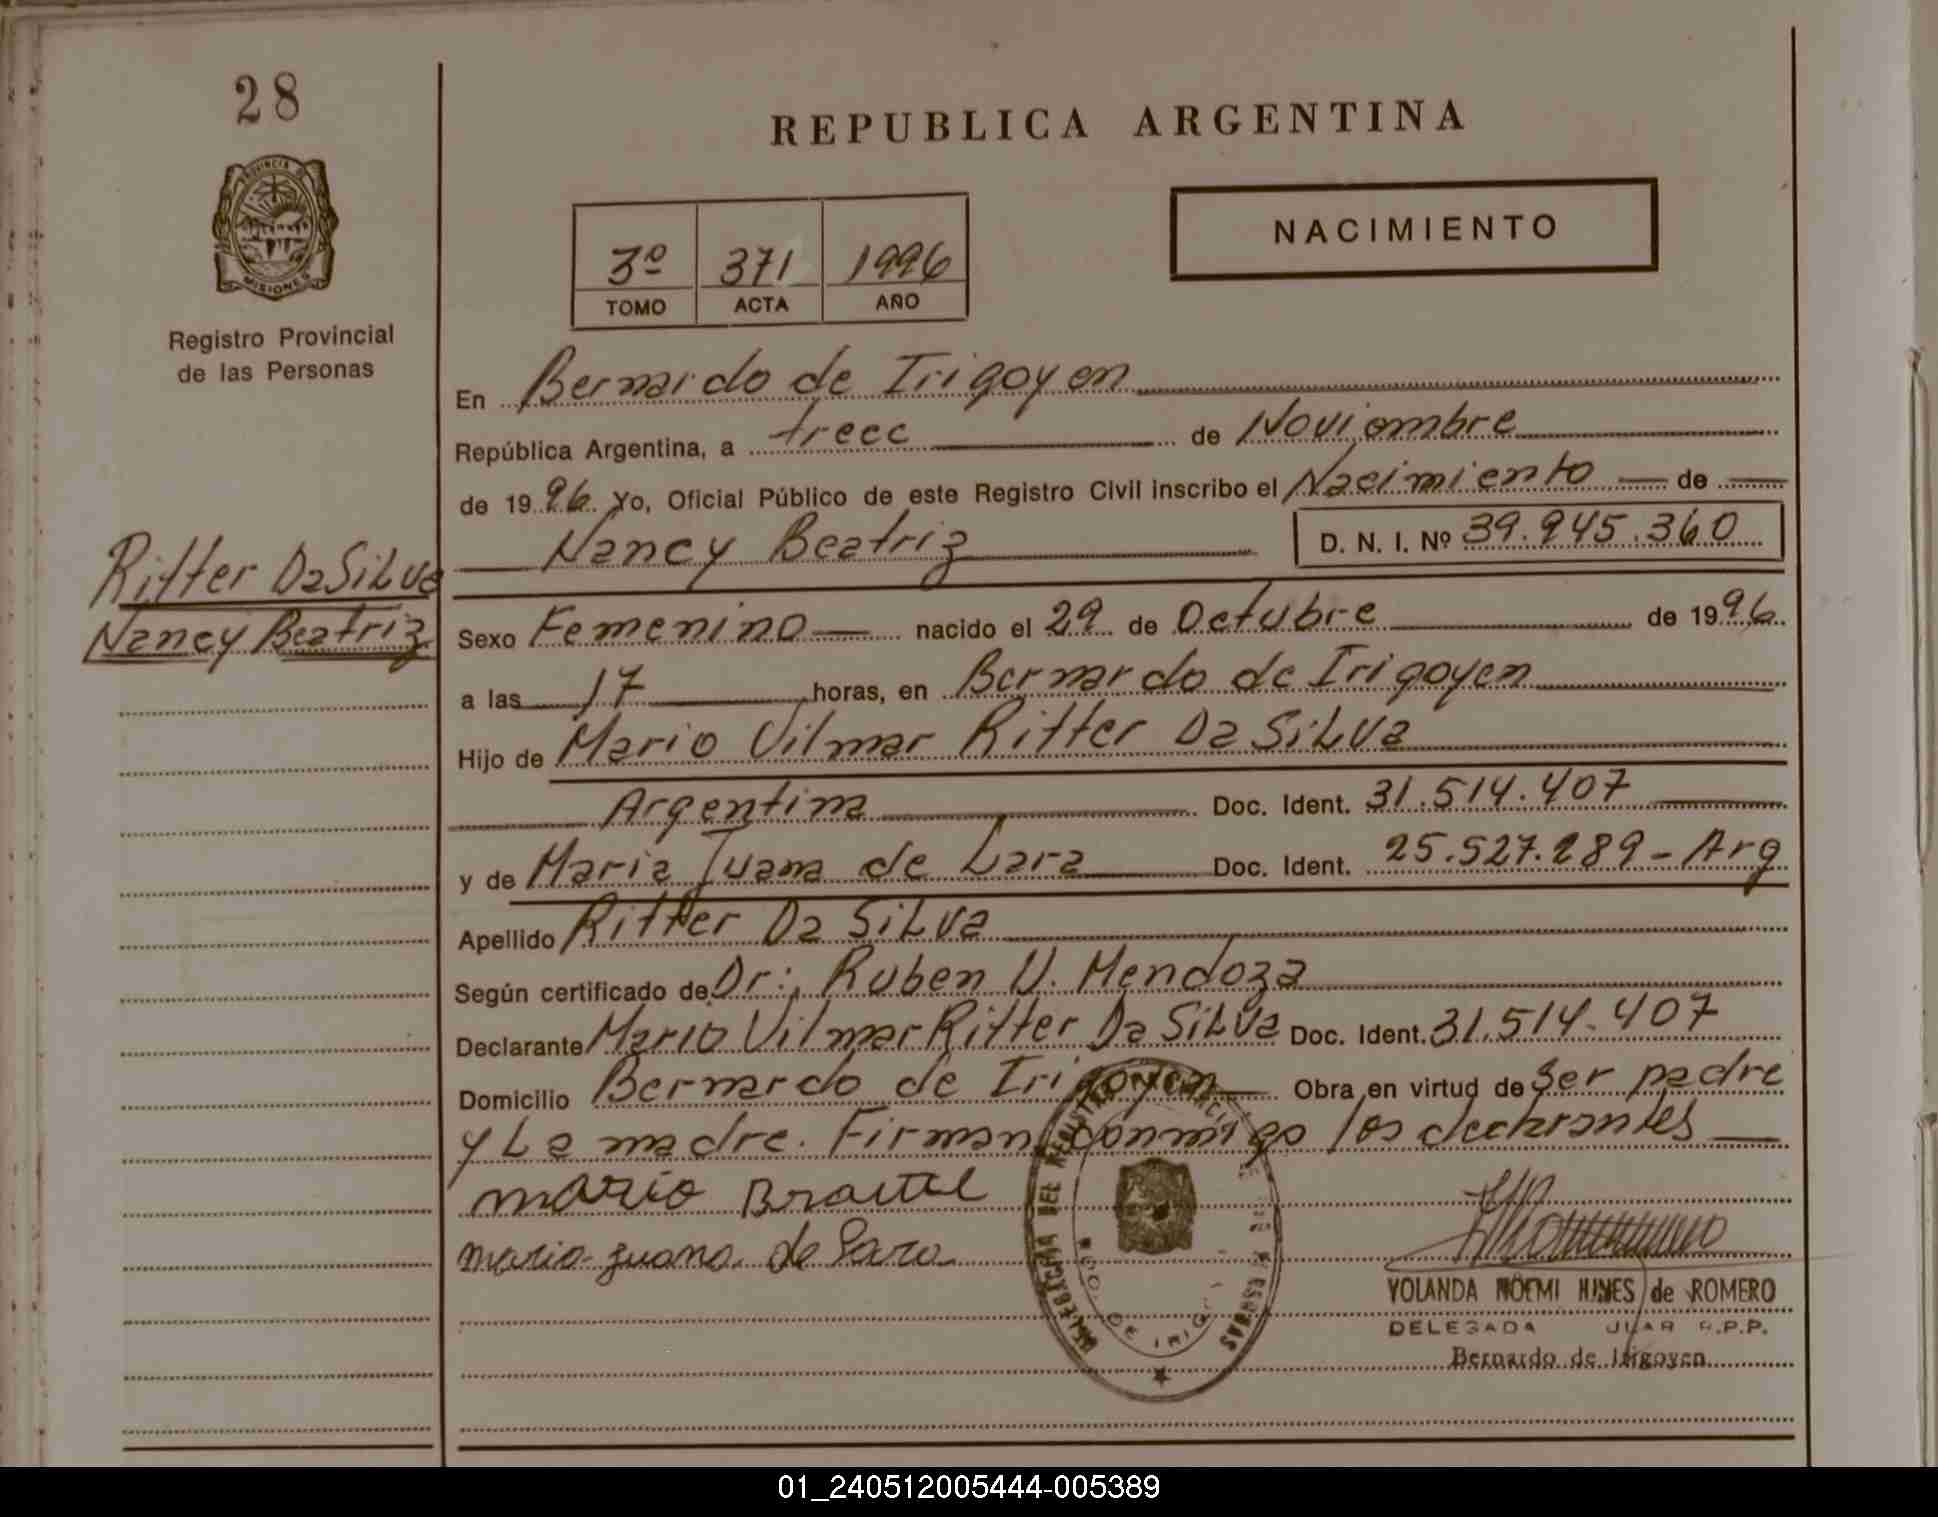 28
REPUBLICA ARGENTINA
PROVINCIA DE
MISIONES
Registro Provincial
de las Personas
NACIMIENTO
3º 371 1996
TOMO ACTA AÑO
En Bernardo de Irigoyen
República Argentina, a trece de Noviembre
de 1996 Yo, Oficial Público de este Registro Civil inscribo el Nacimiento de
Nancy Beatriz D. N. I. Nº 39.945.360
Ritter Da Silva
Nancy Beatriz
Sexo Femenino nacido el 29 de Octubre de 1996
a las 17 horas, en Bernardo de Irigoyen
Hijo de Mario Vilmar Ritter Da Silva
Argentina Doc. Ident. 31.514.407
y de Maria Juana de Lara Doc. Ident. 25.527.289 - Arg
Apellido Ritter Da Silva
Según certificado de Dr: Ruben U. Mendoza
Declarante Mario Vilmar Ritter Da Silva Doc. Ident. 31.514.407
Domicilio Bernardo de Irigoyen Obra en virtud de ser padre
y La madre. Firman conmigo los declarantes
mario
maria juana de Lara
DELEGACION DEL REGISTRO PROVINCIAL DE LAS PERSONAS
BDO. DE IRIGOYEN
YOLANDA NOEMI NUNES de ROMERO
DELEGADA R.P.P.
Bernardo de Irigoyen
01_240512005444-005389